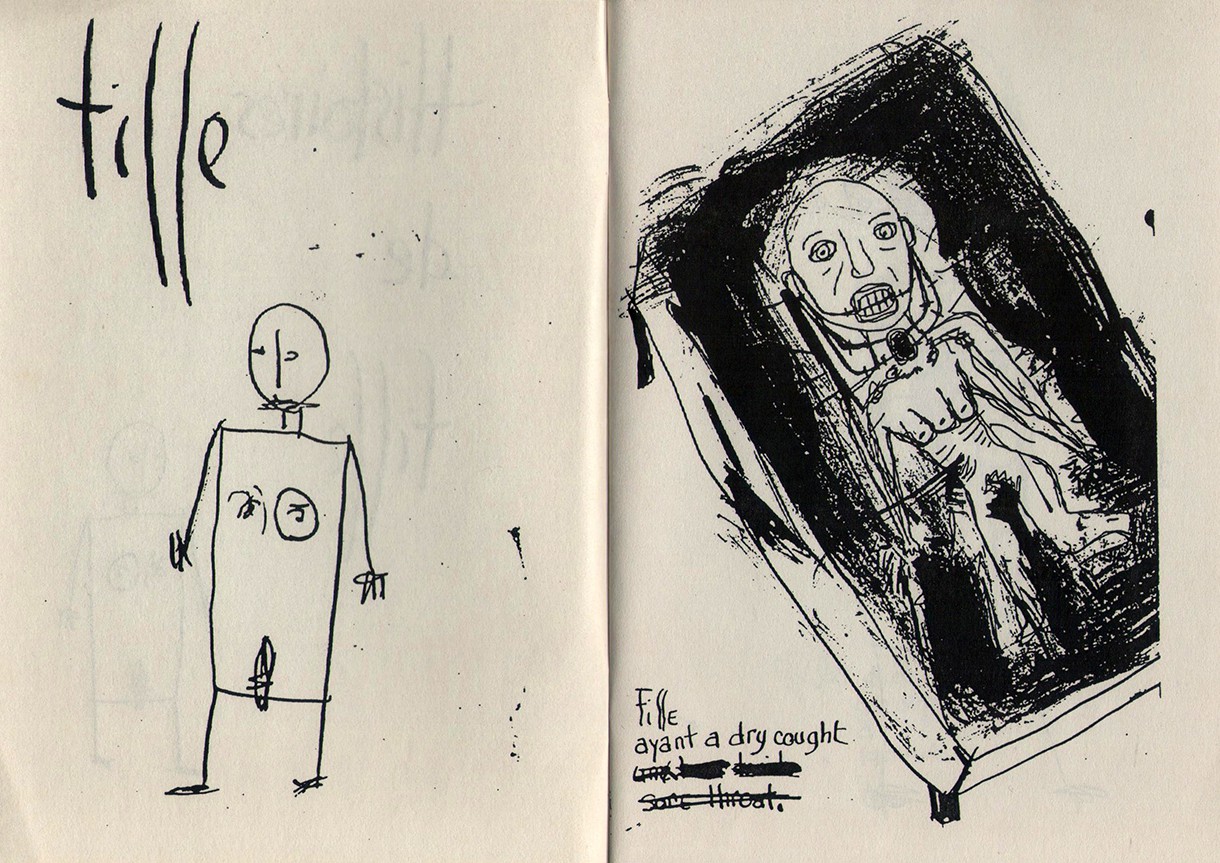 fille
Fille
ayant a dry cought
sore throat.